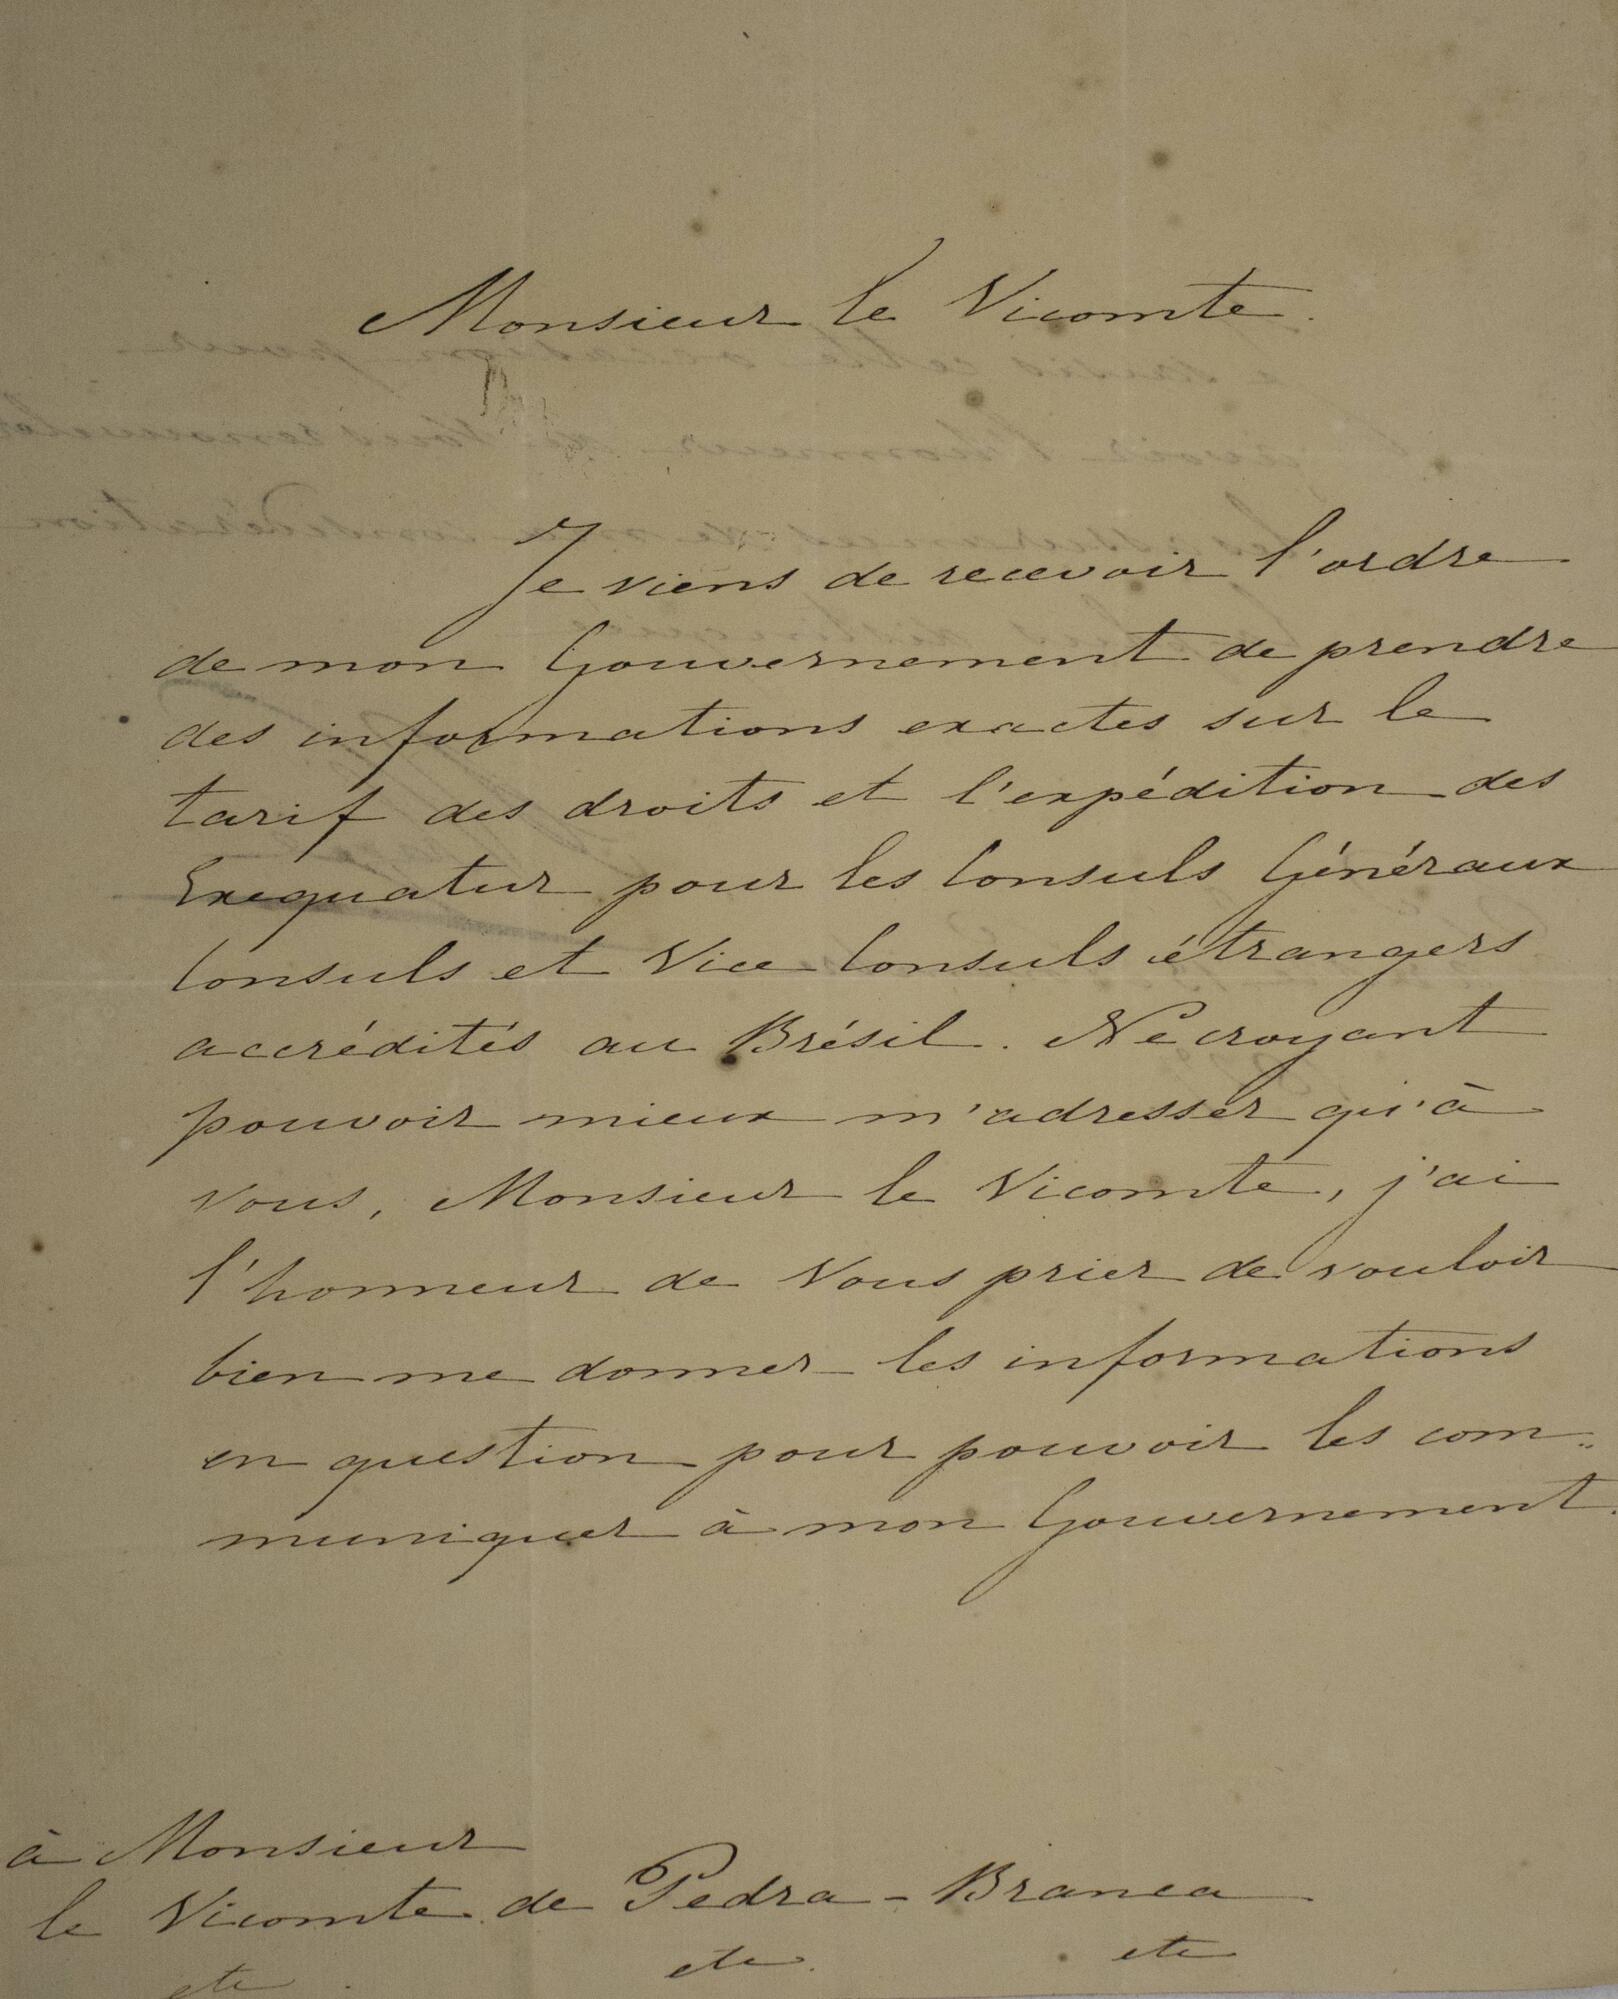 Monsieur le Vicomte.
Je viens de recevoir l'ordre
de mon Gouvernement de prendre
des informations exactes sur le
tarif des droits et l'expédition des
Exequatur pour les Consuls Généraux
Consuls et Vice Consuls étrangers
accrédités au Brésil. Ne croyant
pouvoir mieux m'adresser qu'à
vous, Monsieur le Vicomte, j'ai
l'honneur de Vous prier de vouloir
bien me donner les informations
en question pour pouvoir les com=
muniquer à mon Gouvernement.
à Monsieur
le Vicomte de Pedra-Branca
etc. etc. etc